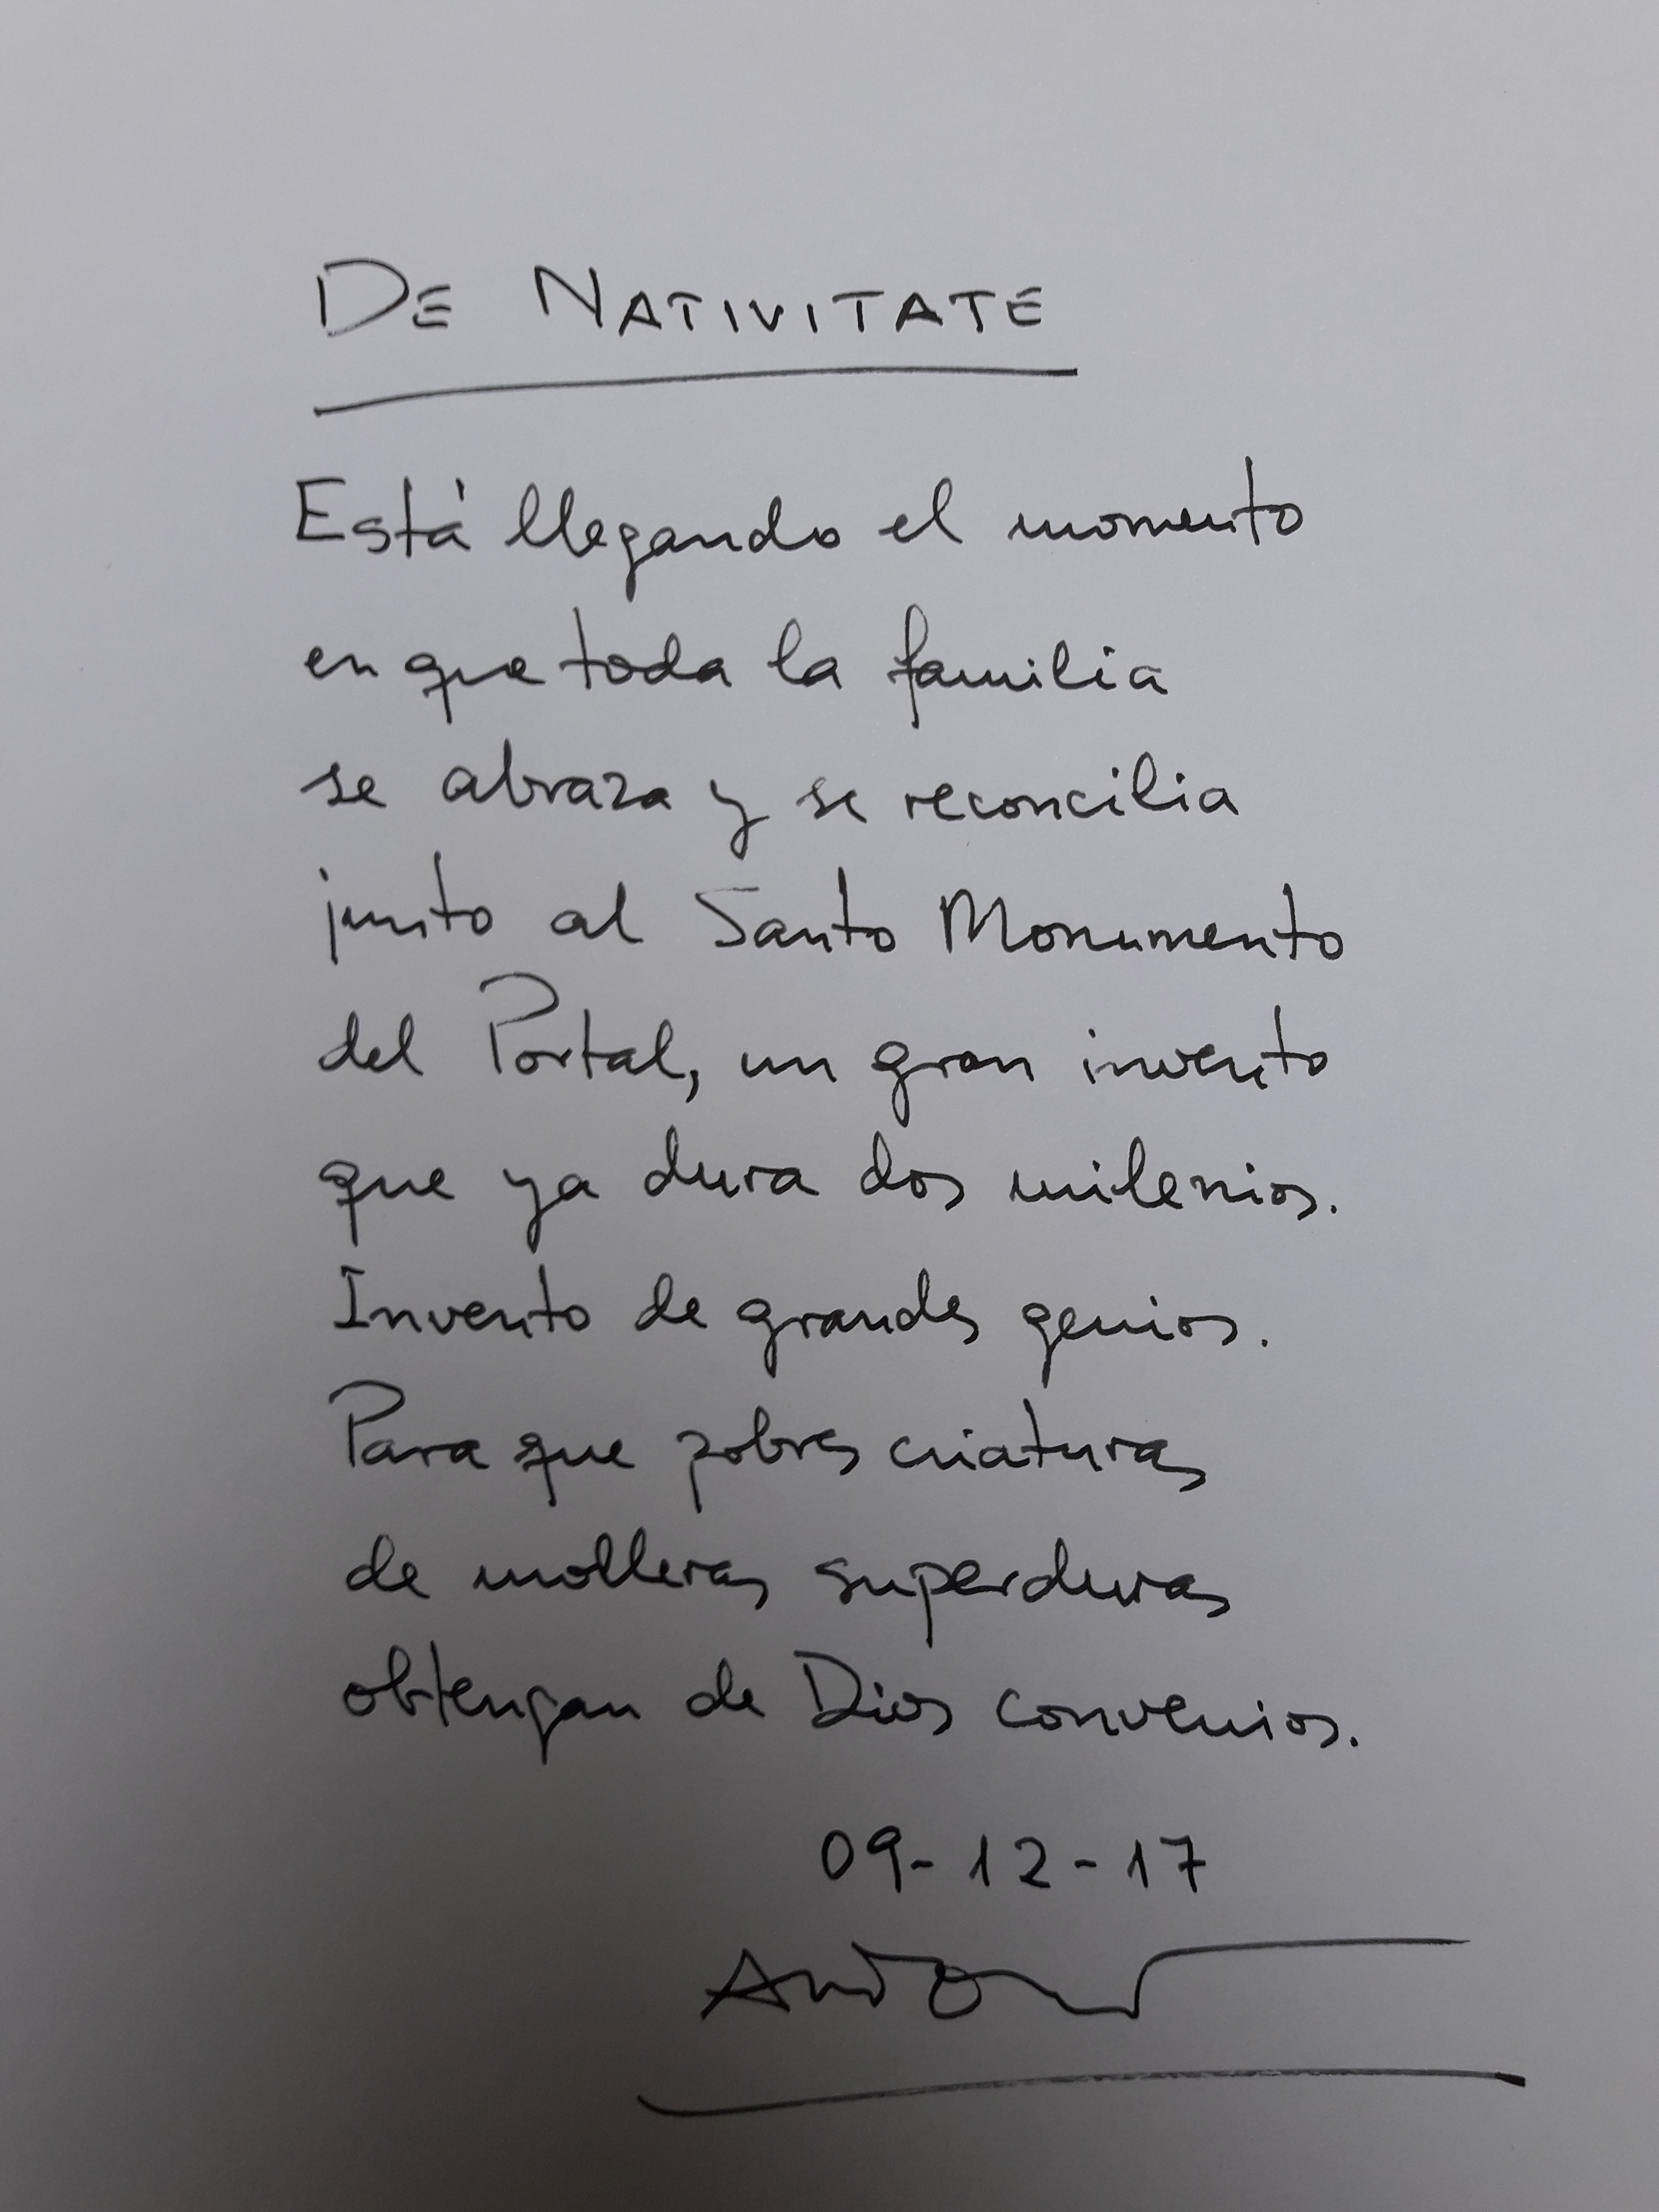 DE NATIVITATE
Está llegando el momento
en que toda la familia
se abraza y se reconcilia
junto al Santo Monumento
del Portal, un gran invento
que ya dura dos milenios.
Invento de grandes genios.
Para que pobres criaturas
de molleras superduras
obtengan de Dios convenios.
09-12-17